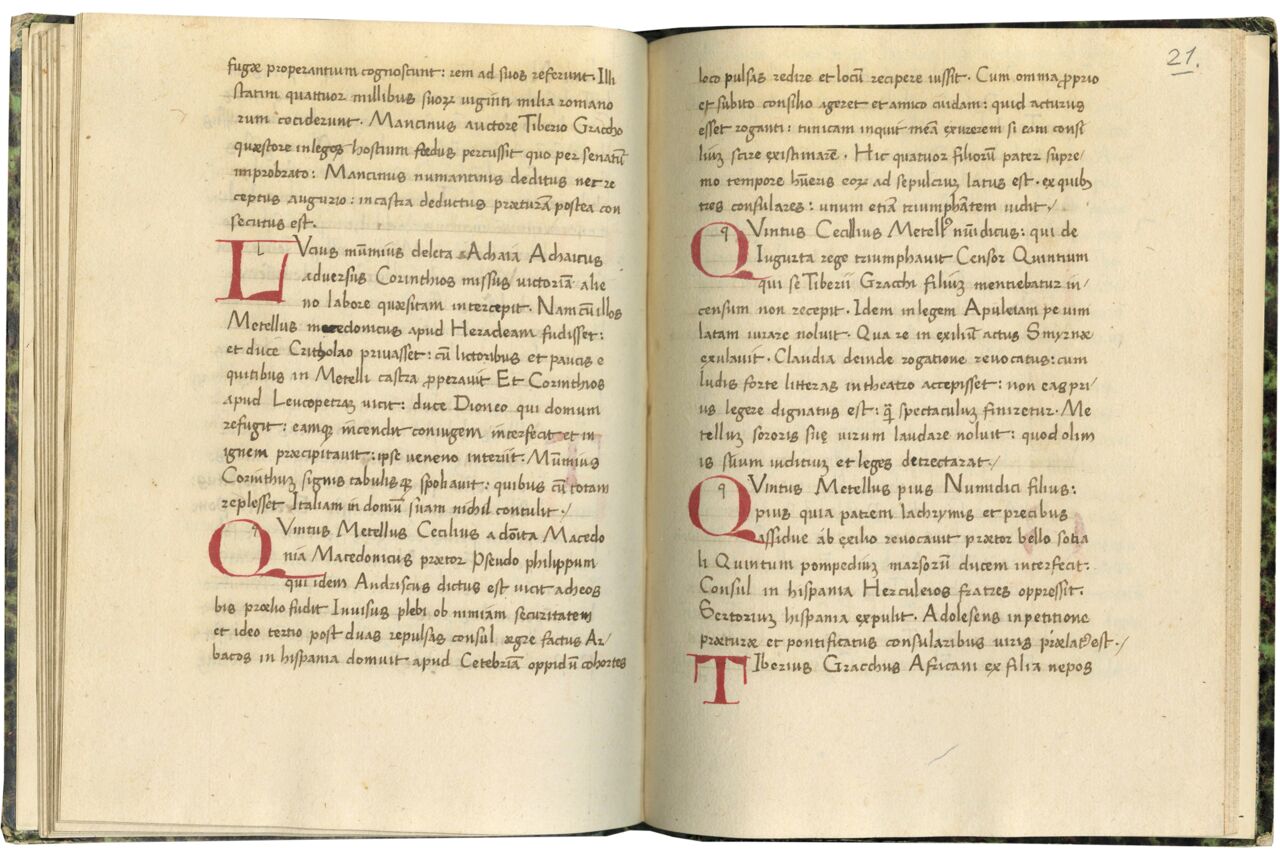 fugæ properantium cognoscunt: rem ad suos referunt. Illi
statim quattuor millibus suoꝝ uiginti milia romano
rum cociderunt. Mancinus auctore Tiberio Graccho
quæstore in leges hostium fœdus percussit quo per senatū
improbrato: Mancinus numantinis deditus nec re
ceptus augurio: in castra deductus præturā postea con
secutus est.
LVcius mūmius deleta Achaia Achaicus
aduersus Corinthios missus uictoriā alie
no labore quæsitam intercepit. Nam cū illos
Metellus macedonicus apud Heracleam fudisset:
et duce Critholao priuasset: cū lictoribus et paucis e
quitibus in Metelli castra ꝓperauit Et Corinthios
apud Leucopetram uicit: duce Dioneo qui domum
refugit: eamqꝫ incendit coniugem interfecit et in
ignem præcipitauit: ipse ueneno interiit. Mūmius
Corinthuꝫ signis tabulisqꝫ spoliauit: quibus cū totam
replesset Italiam in domū suam nichil contulit./
QVintus Metellus Cecilius a domita Macedo
nia Macedonicus prætor Pseudo philippum
qui idem Andriscus dictus est uicit acheos
bis prœlio fudit Inuisus plebi ob nimiam securitatem
et ideo tertio post duas repulsas consul ægre factus Ar/
bacos in hispania domuit apud Cetebriā oppidū cohortes
21.
loco pulsas redire et locū recipere iussit. Cum omnia ꝓprio
et subito consilio ageret et amico cuidam: quid acturus
esset roganti: tunicam inquit meā exurerem si eam consi
liuꝫ scire existimarē. Hic quatuor filiorū pater supre/
mo tempore hūeris eoꝝ ad sepulcruꝫ latus est. ex quibꝫ
tres consulares: unum etiā triumphātem uidit./
QVintus Cecilius Metellꝰ numidicus: qui de
Iugurta rege triumphauit Censor Quintium
qui se Tiberii Gracchi filiuꝫ mentiebatur in/
censum non recepit. Idem in legem Apuleiam pe uim
latam iurare noluit. Qua re in exiliū actus Smyrnæ
exulauit. Claudia deinde rogatione reuocatus: cum
ludis forte litteras in theatro accepisset: non eas pri/
us legere dignatus est: ꝙ̄ spectaculuꝫ finiretur. Me
telluꝫ sororis suę uirum laudare noluit: quod olim
is suum iudiciuꝫ et leges detrectarat./
QVintus Metellus pius Numidici filius:
pius quia patrem lachrymis et precibus
assidue ab exilio reuocauit prætor bello sotia
li Quintum pompediuꝫ marsorū ducem interfecit:
Consul in hispania Herculeios fratres oppressit.
Sertorium hispania expulit. Adolesens in petitione
præturæ et pontificatus consularibus uiris prælatꝰ est./
TIberius Gracchus Africani ex filia nepos